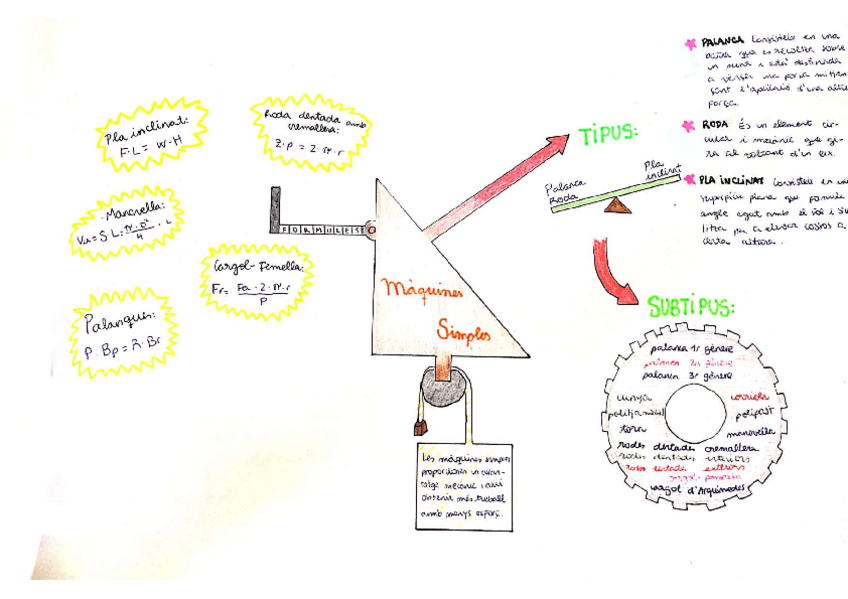 Pla inclinat:
F·L= W·H
Roda dentada amb
cremallera:
Z·p = 2·π·r
Manovella:
L
Cargol-Femella:
Fr= Fa·2·π·r
P
Palanques:
P·Bp=R·Br
FORMULES
Màquines
Simples
Les màquines simples
proporcionen un avan-
tatge mecànic i així
obtenir més treball
amb menys esforç.
TIPUS:
Palanca
Roda
Pla
inclinat
PALANCA Consisteix en una
que es recolza sobre
un punt i està destinada
a vèncer una força mitjan
çant l'aplicació d'una altra
força.
RODA És un element cir-
cular i mecànic que gi-
ra al voltant d'un eix.
PLA INCLINAT Consisteix en una
superfície plana que forma
angle agut amb el sòl i s'u
tilitza per a elevar cossos a
certa altura.
SUBTIPUS:
palanca 1r gènere
palanca 2n gènere
palanca 3r gènere
cunya
corriola
politja mòbil
polipast
torn
manovella
rodes dentades cremallera
rodes dentades interiors
roda dentada exteriors
cargol d'Arquimedes